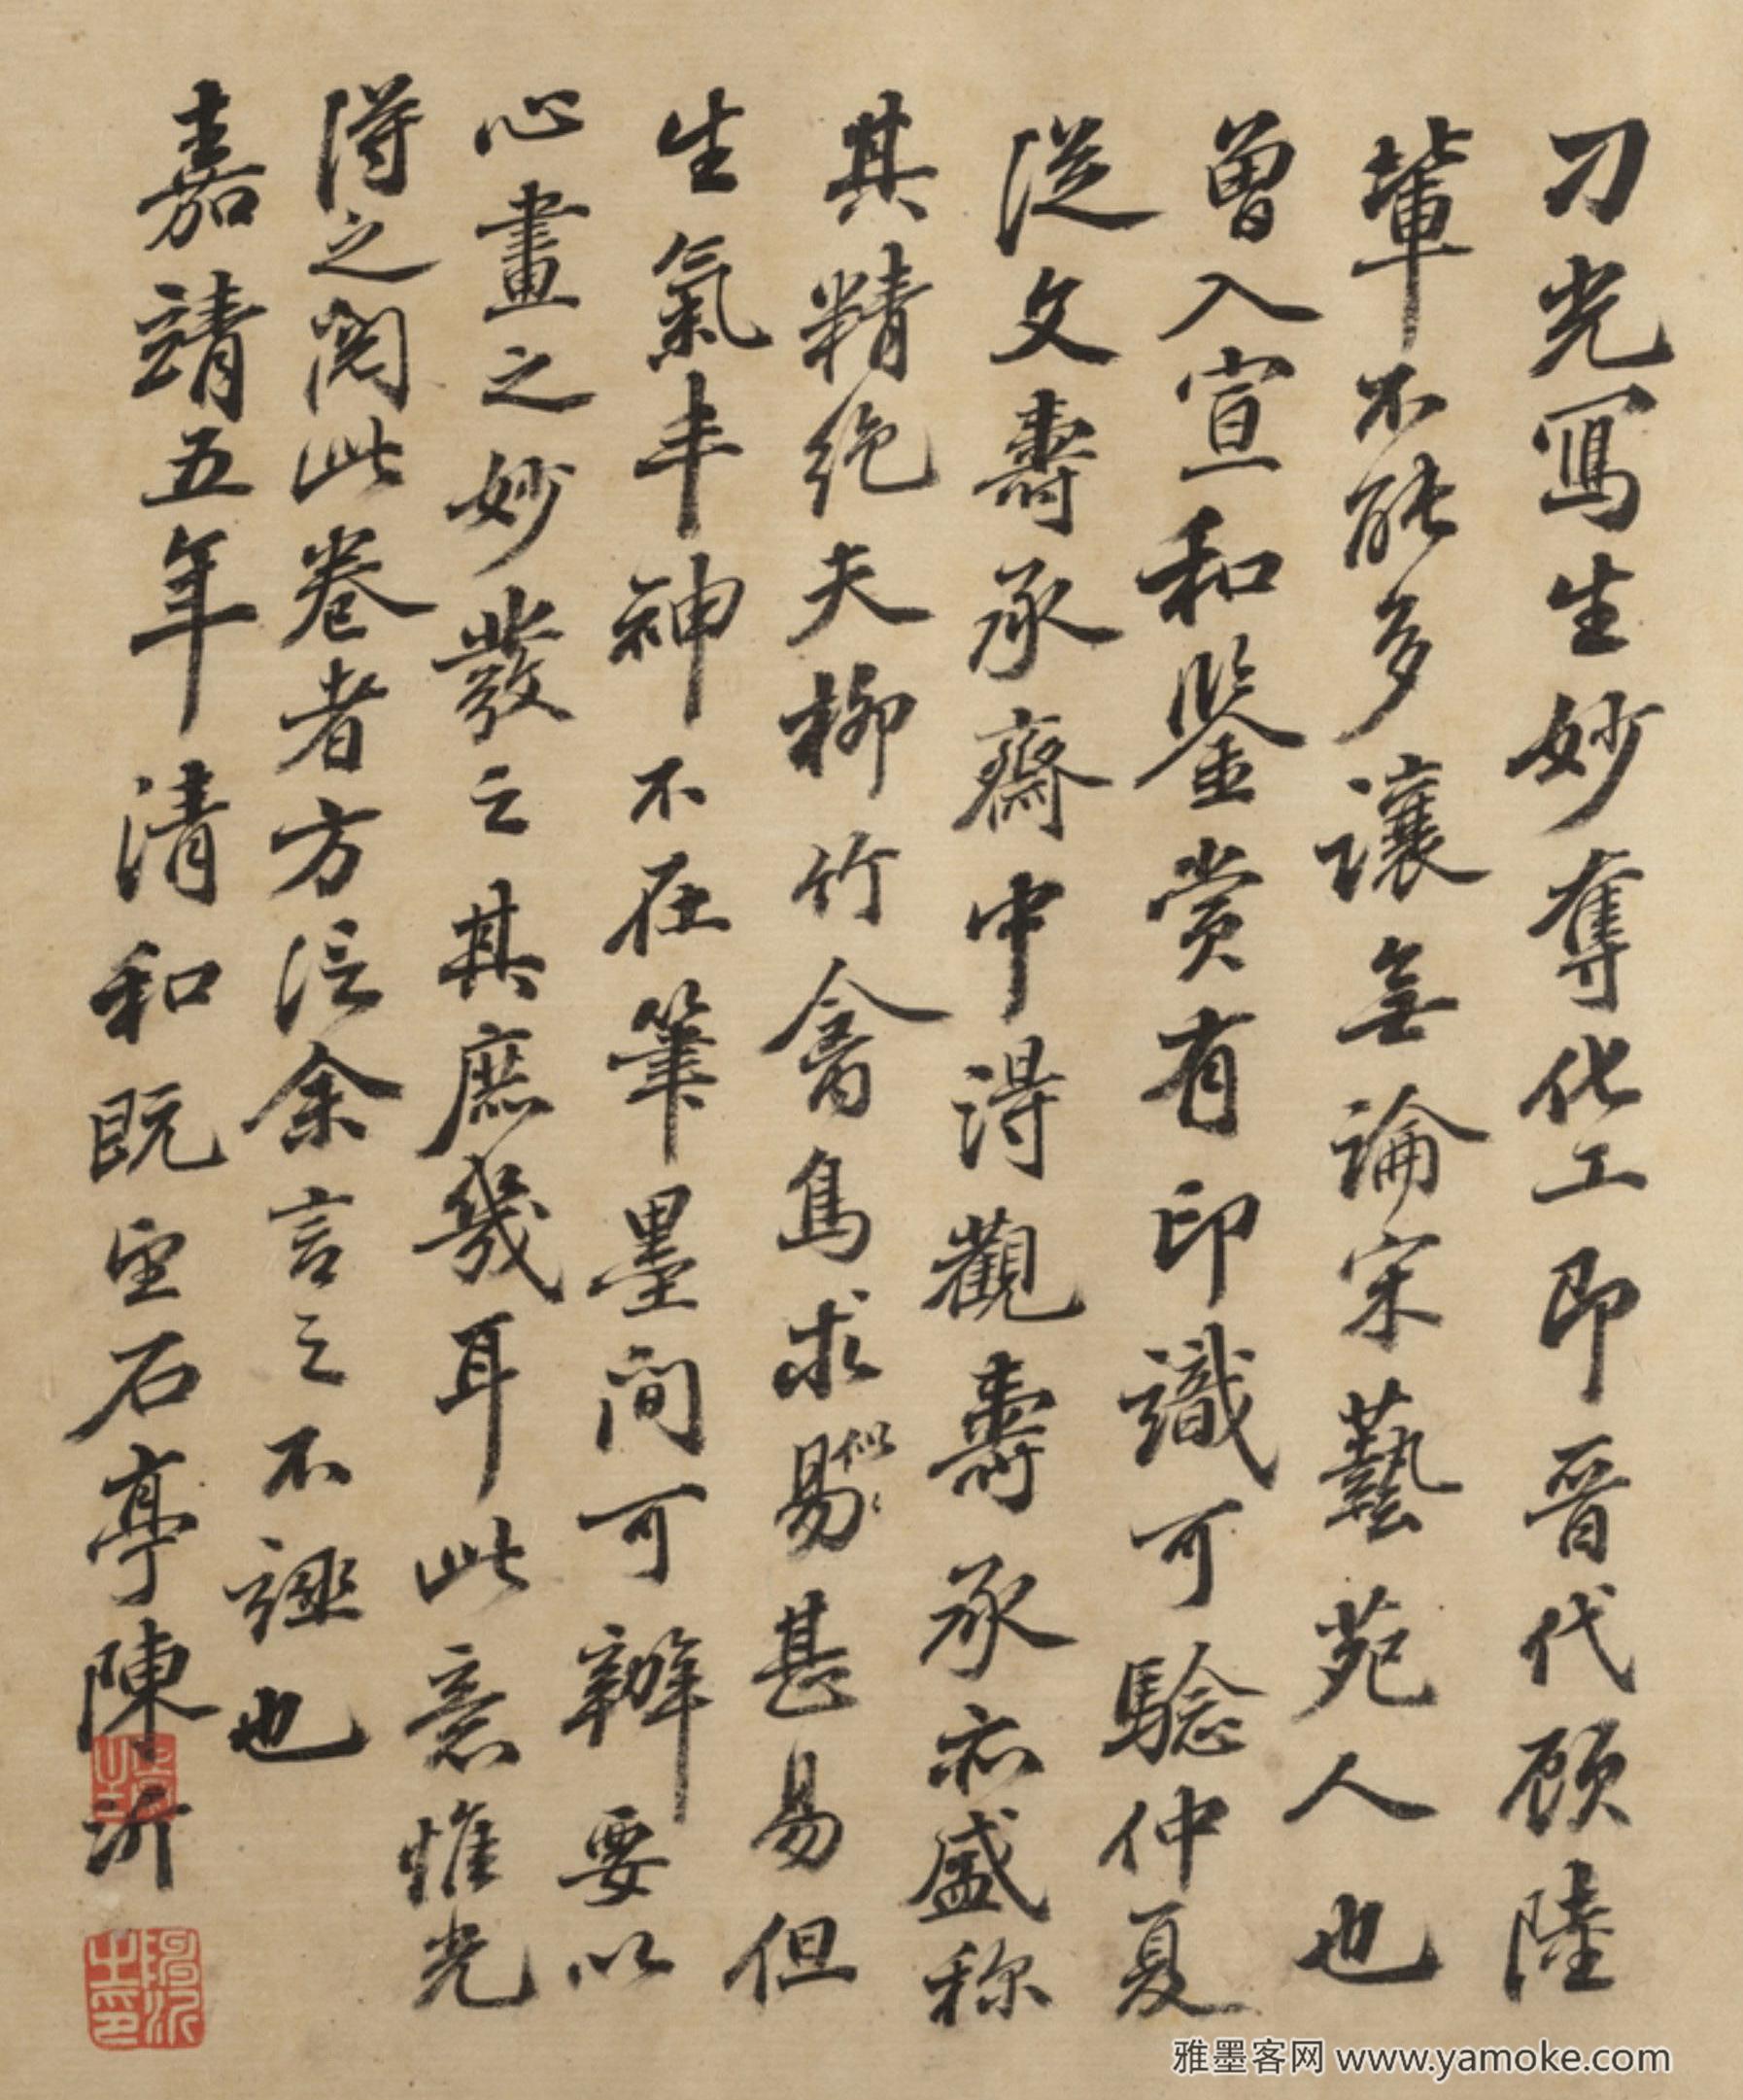 刁光寫生妙奪化工即晉代顧陸
輩不能多讓無論宋藝苑人也
曾入宣和鑒賞有印識可驗仲夏
從文壽承齋中得觀壽承亦盛稱
其精絕夫柳竹禽鳥求易似似甚易但
生氣丰神不在筆墨間可辦要以
心畫之妙發之其庶幾耳此意惟光
得之閱此卷者方信余言之不誣也
嘉靖五年清和既望石亭陳沂
陳沂之印
雅墨客网 www.yamoke.com